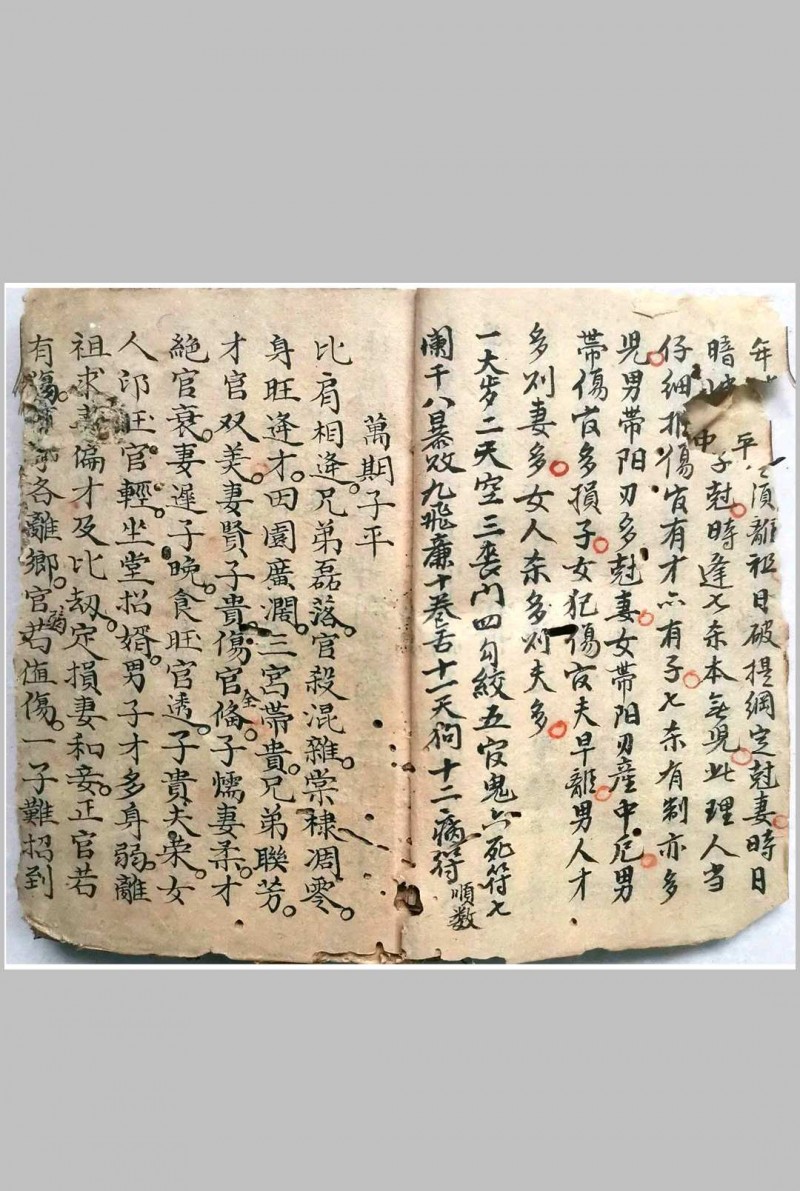 年 須離祖日破提綱定尅妻時日
暗 子尅時逢七杀本無児此理人当
仔細推傷官有才亦有子七杀有制亦多
児男帶阳刃多尅妻女帶阳刃産中危男
帶傷官多損子女犯傷官夫早離男人才
多则妻多女人杀多则夫多
一大岁二天空三丧门四勾絞五官鬼六死符七
阑干八暴败九飛廉十卷舌十一天狗十二病符順数
萬期子平
比肩相逢。兄弟磊落。官殺混雜。棠棣凋零。
身旺逢才。田園廣濶。三宮帶貴。兄弟聯芳。
才官双美。妻賢子貴。傷官全偹。子懦妻柔。才
絶官衰。妻遲子晩。食旺官透。子貴夫荣。女
人印旺官輕。坐堂招婿。男子才多身弱。離
祖求 偏才及比刼。定損妻和妾。正官若
有傷。 各離鄉。官若值傷。一子難招到